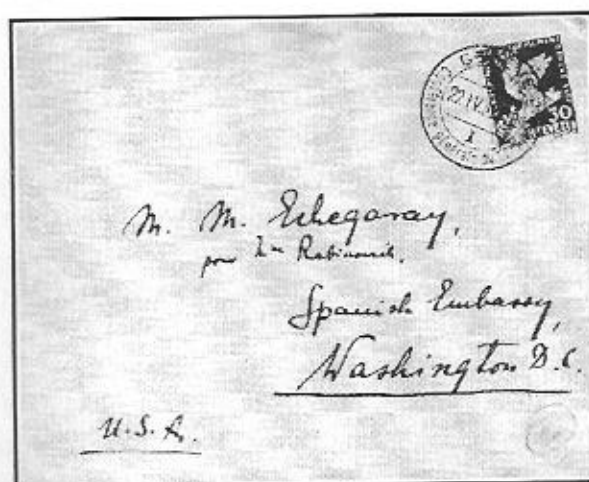 22.IV.3
1
30
M. M. Echegaray,
pour Rabinovich.
Spanish Embassy,
Washington D.C.
U.S.A.